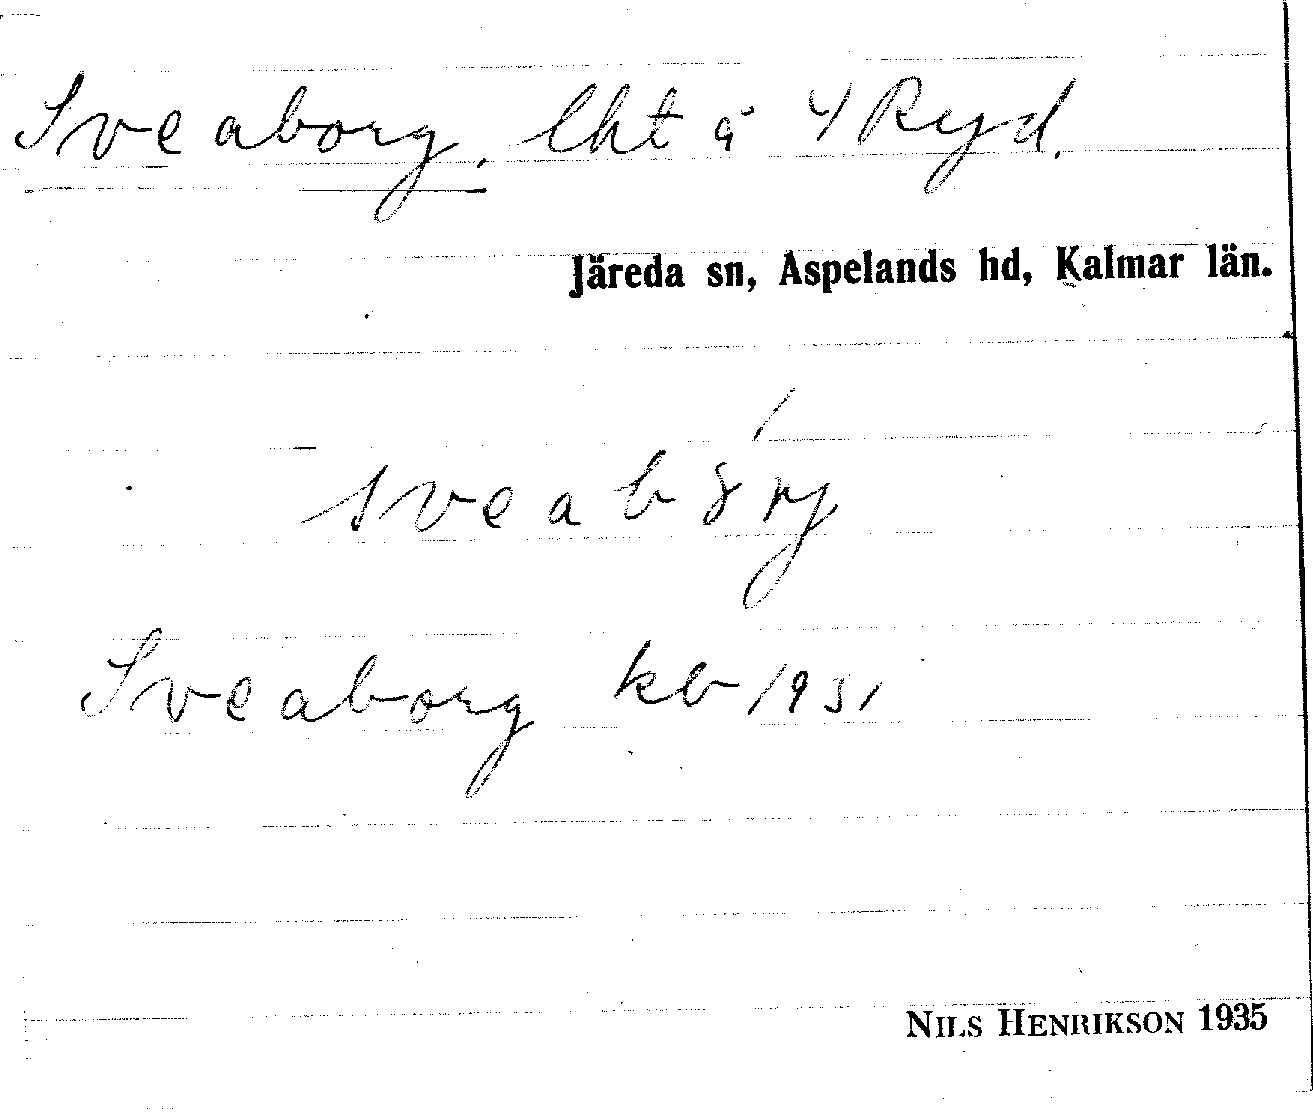 Sveaborg, lht å 4 Ryd.
Järeda sn, Aspelands hd, Kalmar län.
Sveaborg kb 1931
NILS HENRIKSON 1935